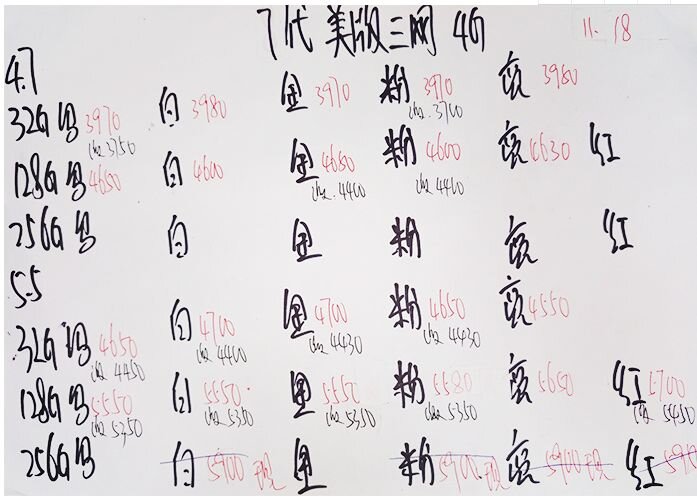 7代 美版三网 4G 11.18
4.7
32G 黑 3970 白 3980 金 3970 粉 3970 亮 3980
3750 3700
128G 黑 4650 白 4600 金 4650 粉 4600 亮 4630 红
4400 4400
256G 黑 白 金 粉 亮 红
5.5
32G 黑 4650 白 4700 金 4700 粉 4650 亮 4550
4450 4400 4430 4430
128G 黑 5550 白 5550 金 5550 粉 5580 亮 5650 红 5700
5350 5350 5350 5350 5450
256G 黑 白 5900 现 金 粉 5900 现 亮 5900 现 红